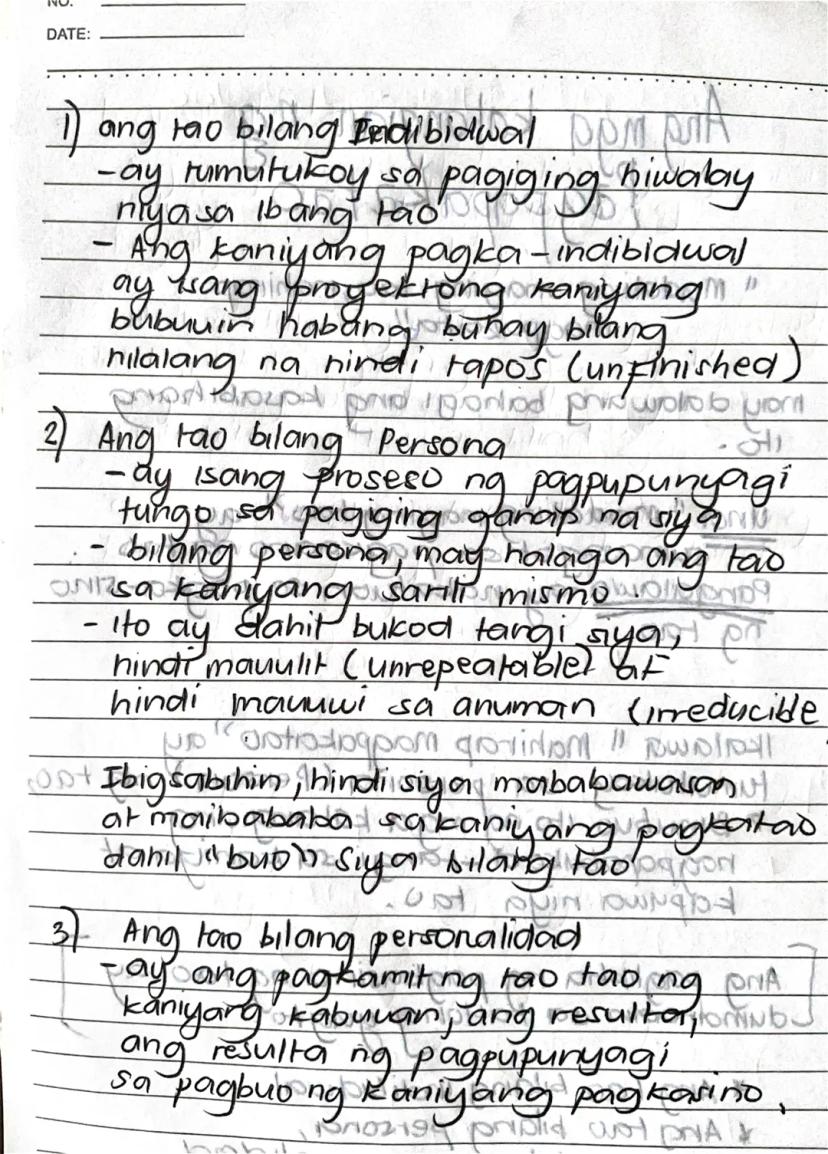 NO.
DATE:
1) ang tao bilang Indibidwal
- ay tumutukoy sa pagiging hiwalay
niya sa ibang tao
- Ang kaniyang pagka-indibidwal
ay isang proyektong kaniyang
bubuuin habang buhay bilang
nilalang na hindi tapos (unfinished)
2) Ang tao bilang Persona
- ay isang proseso ng pagpupunyagi
tungo sa pagiging ganap na siya
- bilang persona, may halaga ang tao
sa kaniyang sarili mismo
- ito ay dahil bukod tangi siya,
hindi mauulit (unrepeatable) at
hindi mauuwi sa anuman (irreducible
Ibig sabihin, hindi siya mababawasan
at maibababa sa kaniyang pagkatao
dahil "buo" siya bilang tao
3) Ang tao bilang personalidad
- ay ang pagkamit ng tao tao ng
kaniyang kabuuan, ang resulta,
ang resulta ng pagpupunyagi
sa pagbuo ng kaniyang pagkasino.